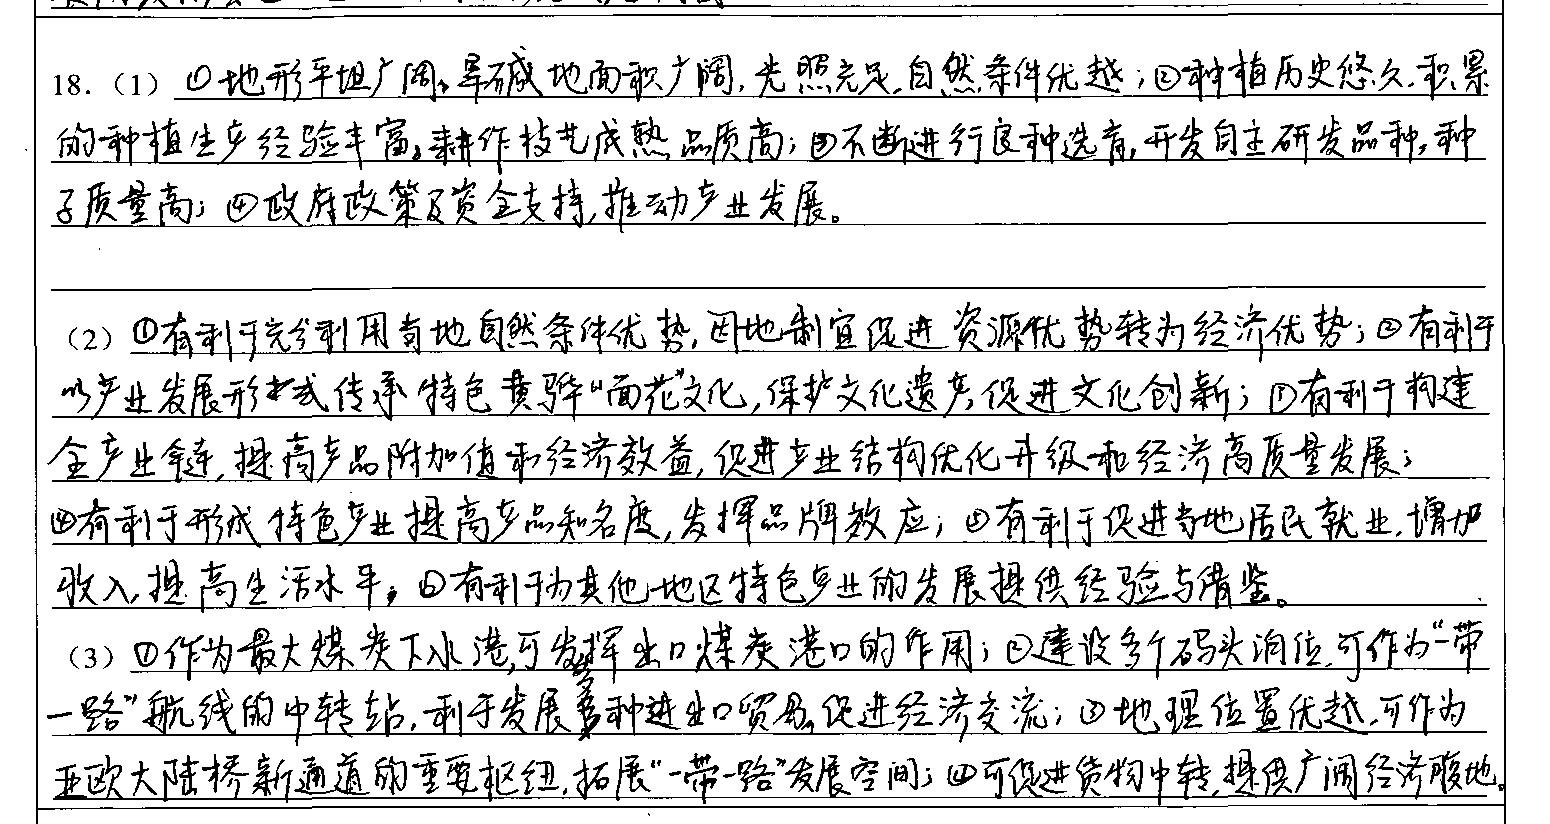 18.（1）①地形平坦广阔,旱碱地面积广阔,光照充足,自然条件优越;②种植历史悠久,积累
的种植生产经验丰富,耕作技艺成熟,品质高;③不断进行良种选育,开发自主研发品种,种
子质量高;④政府政策及资金支持,推动产业发展。
（2）①有利于充分利用当地自然条件优势,因地制宜促进资源优势转为经济优势;②有利于
以产业发展形式传承特色黄骅“面花”文化,保护文化遗产,促进文化创新;③有利于构建
全产业链,提高产品附加值和经济效益,促进产业结构优化升级和经济高质量发展;
④有利于形成特色产业提高产品知名度,发挥品牌效应;⑤有利于促进当地居民就业,增加
收入,提高生活水平;⑥有利于为其他地区特色产业的发展提供经验与借鉴。
（3）①作为最大煤炭下水港,可发挥出口煤炭港口的作用;②建设多个码头泊位,可作为“一带
一路”航线的中转站,利于发展多种进出口贸易,促进经济交流;③地理位置优越,可作为
亚欧大陆桥新通道的重要枢纽,拓展“一带一路”发展空间;④可促进货物中转,提供广阔经济腹地。